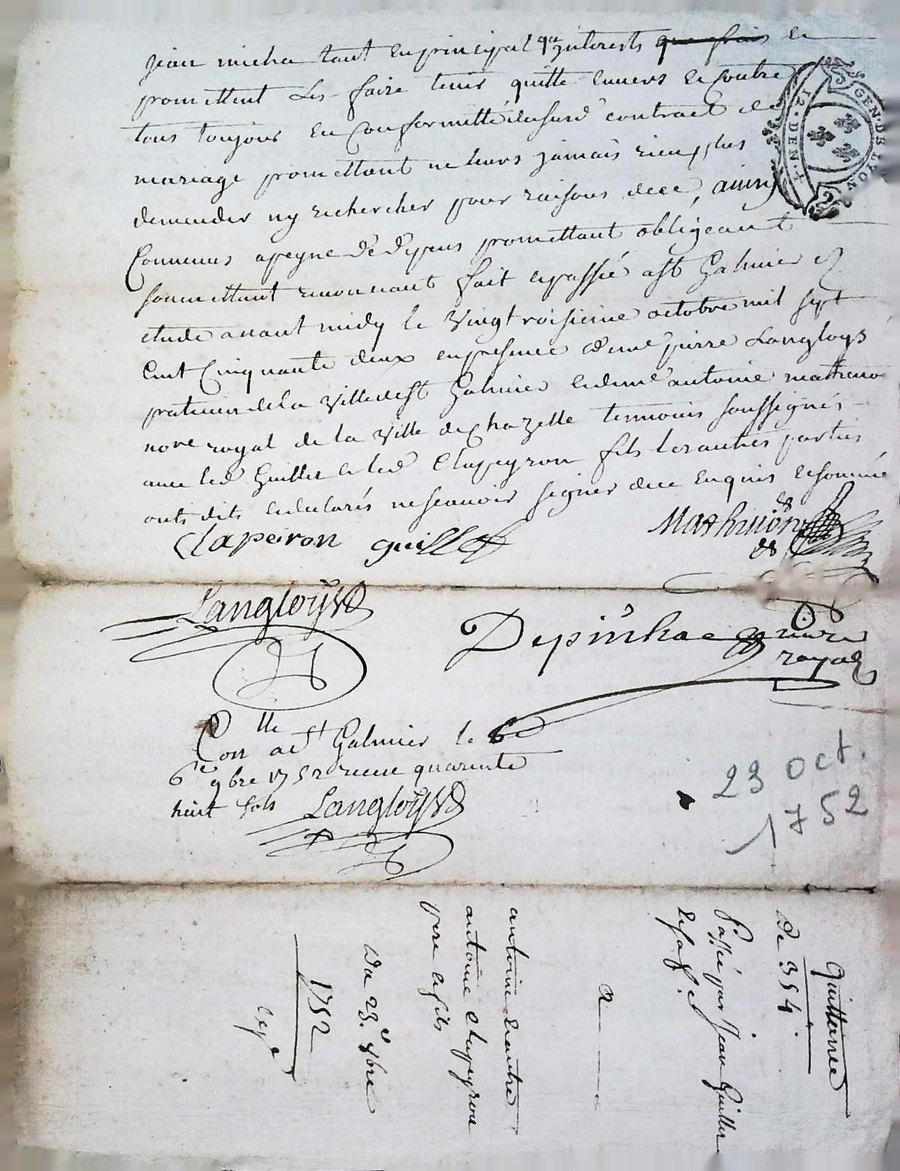 jean micha tant en principal qu interests que frais et
promettent les faire tenir quitte envers et contre
tous toujour en conformitté dususd contract de
mariage promettant ne leurs jamais rien plus
demander ny rechercher pour raisons dece, ainsy
Convenus apeyne de depens promettant obligeant
soumettant renonceant fait et passé a st Galmier et
etude avant midy le vingtroisieme octobre mil sept
Cent Cinquante deux en presence de me pierre Langloys
praticien de la ville de st Galmier et de me antoine
nore royal de la ville de Chazelle temoins soussignés
avec led Guillet et led Clapeyron fils les autres parties
onts dits et declarés ne scavoir signer de ce enquis et sommé
Clapeiron guillet
Langloys
royal
Conlle a st Galmier le
6e 9bre 1752 receu quarente
huit sols Langloys
GEN·DE LYON
12·DEN·4
23 oct.
1752
Quittance
De 354
Passée par Jean Guillet
et sa f.
a
antoine et autre
antoine Clapeyron
pere et fils
Du 23e 8bre
1752